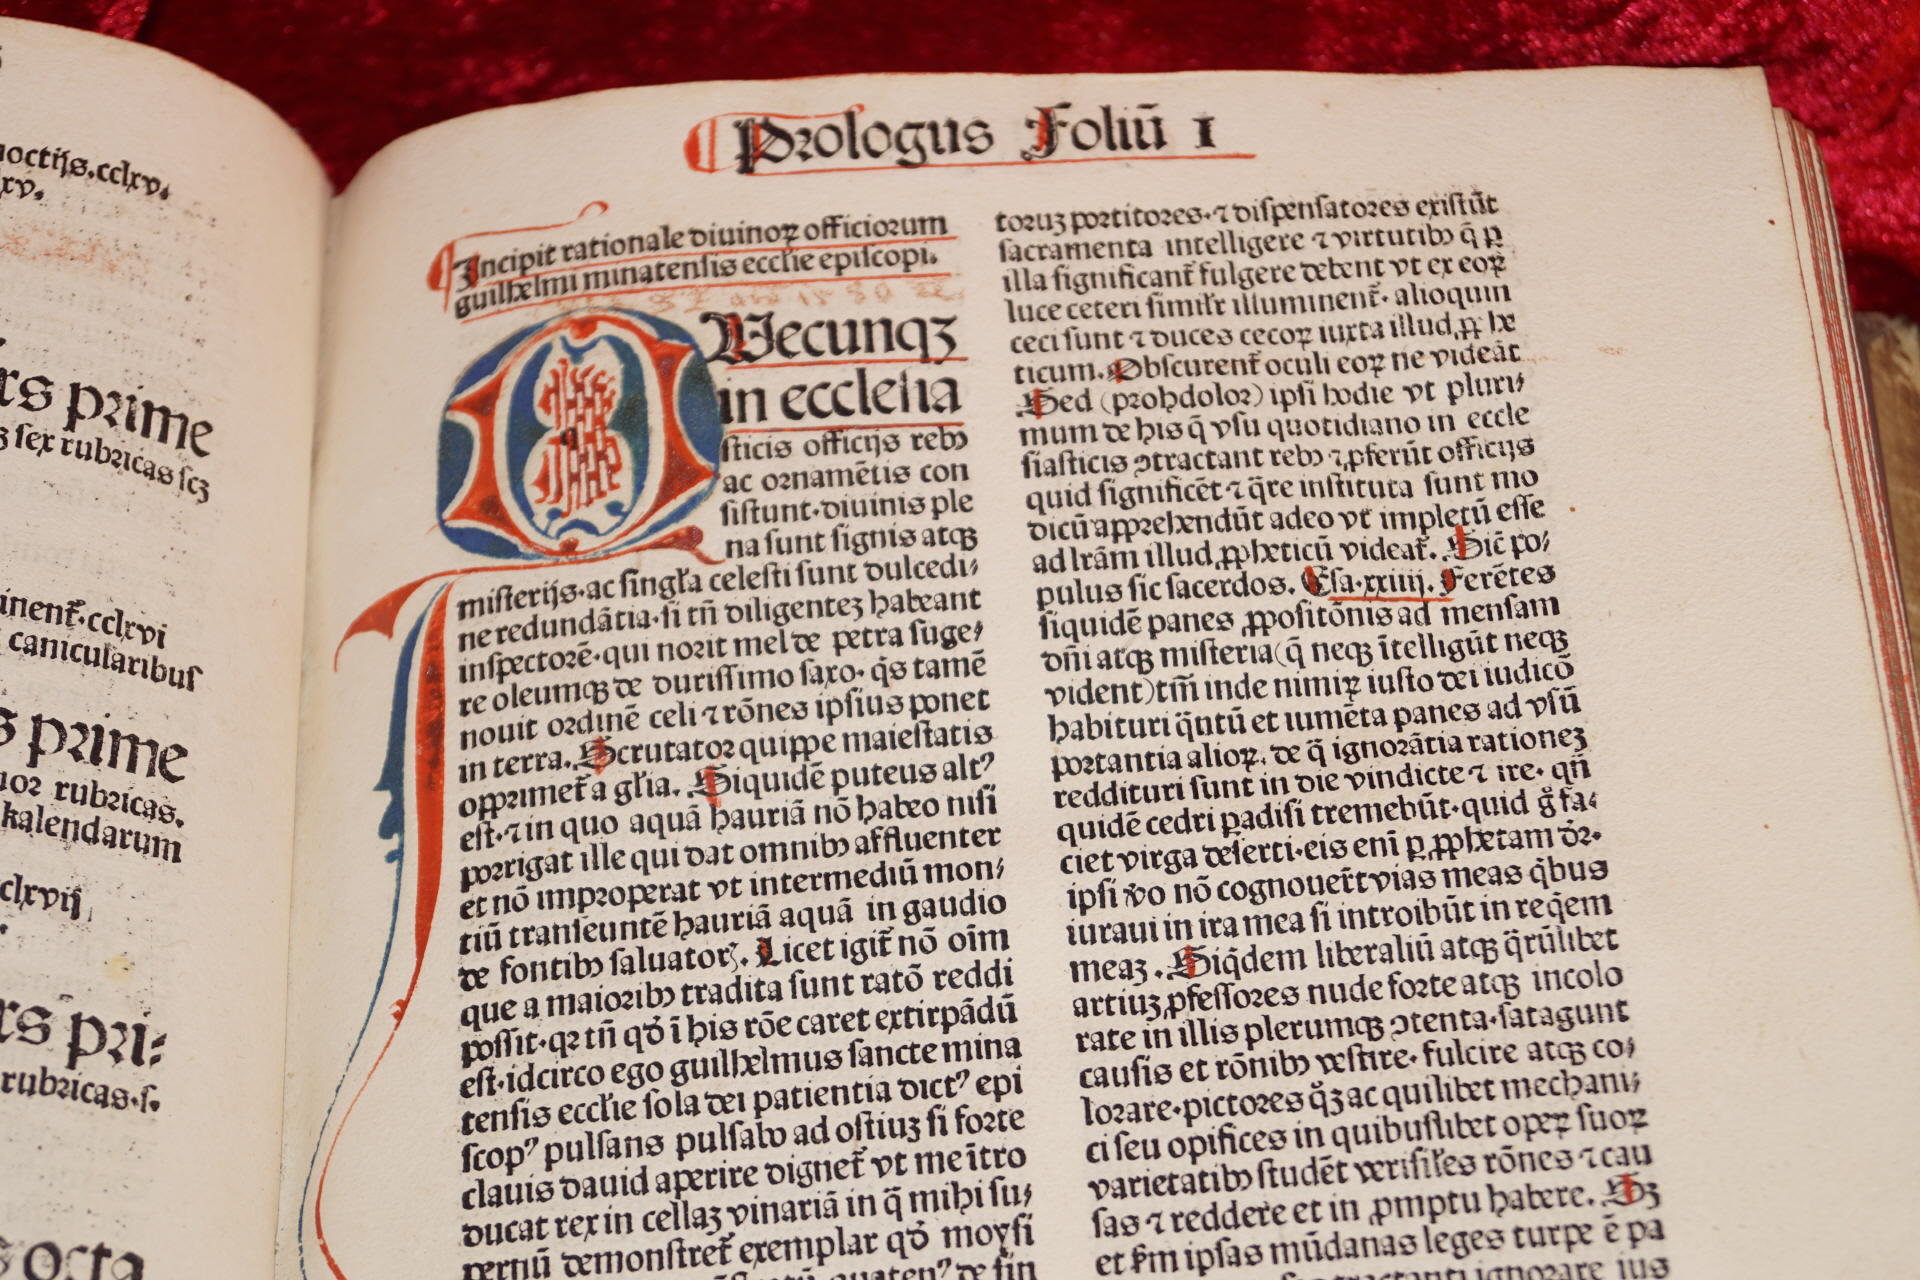 noctijs.cclxv.
xv.
rs prime
ʒ sex rubricas scʒ
inent̃.cclxvi
canicularibus
s prime
uor rubricas.
kalendarum
cclxvij
rs pri:
rubricas.s.
octa
Prologus Foliũ 1
Incipit rationale diuinoꝝ officiorum
guilhelmi minatensis eccl'ie episcopi.
QVecunqꝫ
in ecclesia
sticis officijs rebꝰ
ac ornamẽtis con
sistunt.diuinis ple
na sunt signis atqꝫ
misterijs.ac singl'a celesti sunt dulcedi/
ne redundãtia.si tñ diligenteʒ habeant
inspectorẽ.qui norit mel de petra suge/
re oleumqꝫ de durissimo saxo. q̃s tamẽ
nouit ordinẽ celi ⁊ rõnes ipsius ponet
in terra. Scrutator quippe maiestatis
opprimet̃ a gl'ia. Siquidẽ puteus altꝰ
est.⁊ in quo aquã hauriã nõ habeo nisi
porrigat ille qui dat omnibꝰ affluenter
et nõ improperat vt intermediũ mon/
tiũ transeuntẽ hauriã aquã in gaudio
de fontibꝰ saluatorꝭ. Licet igit̃ nõ oĩm
que a maioribꝰ tradita sunt ratõ reddi
possit.qꝛ tñ qđ ĩ his rõe caret extirpãdũ
est.idcirco ego guilhelmus sancte mina
tensis eccl'ie sola dei patientia dictꝰ epi
scopꝰ pulsans pulsabo ad ostiuʒ si forte
clauis dauid aperire dignet̃ vt me ĩtro
ducat rex in cellaʒ vinariã in q̃ mihi su/
pernũ demonstret̃ exemplar qđ moysi
toruʒ portitores.⁊ dispensatores existũt
sacramenta intelligere ⁊ virtutibꝰ q̃ ꝑ
illa significant̃ fulgere debent vt ex eoꝝ
luce ceteri simil'r illuminent̃. alioquin
ceci sunt ⁊ duces cecoꝝ iuxta illud ꝓphe
ticum. Obscurent̃ oculi eoꝝ ne videãt
Sed (prohdolor) ipsi hodie vt pluri/
mum de his q̃ vsu quotidiano in eccle
siasticis ꝯtractant rebꝰ ⁊ ꝓferũt officijs
quid significẽt ⁊ q̃re instituta sunt mo
dicũ apprehendũt adeo vt impletũ esse
ad lr̃am illud ꝓpheticũ videat̃. Sic̃ po/
pulus sic sacerdos. Esa.xxiiij. Ferẽtes
siquidẽ panes ꝓpositõnis ad mensam
dñi atqꝫ misteria(q̃ neqꝫ ĩtelligũt neqꝫ
vident)tm̃ inde nimiꝝ iusto dei iudicõ
habituri q̃ntũ et iumẽta panes ad vsũ
portantia alioꝝ. de q̃ ignorãtia rationeʒ
reddituri sunt in die vindicte ⁊ ire. qñ
quidẽ cedri ꝑadisi tremebũt.quid g̃ fa/
ciet virga deserti.eis eni ꝑ ꝓphetam dr̃.
ipsi ṽo nõ cognouer̃t vias meas q̃bus
iuraui in ira mea si introibũt in req̃em
meaʒ. Siq̃dem liberaliũ atqꝫ q̃rũlibet
artiuʒ ꝓfessores nude forte atqꝫ incolo
rate in illis plerumqꝫ ꝯtenta.satagunt
causis et rõnibꝰ vestire. fulcire atqꝫ co/
lorare.pictores q̃ʒ ac quilibet mechani/
ci seu opifices in quibuslibet opeꝝ suoꝝ
varietatibꝰ studẽt verisil'es rõnes ⁊ cau
sas ⁊ reddere et in ꝓmptu habere. Sʒ
et s̃m ipsas mũdanas leges turpe ẽ pa
ignorare ius